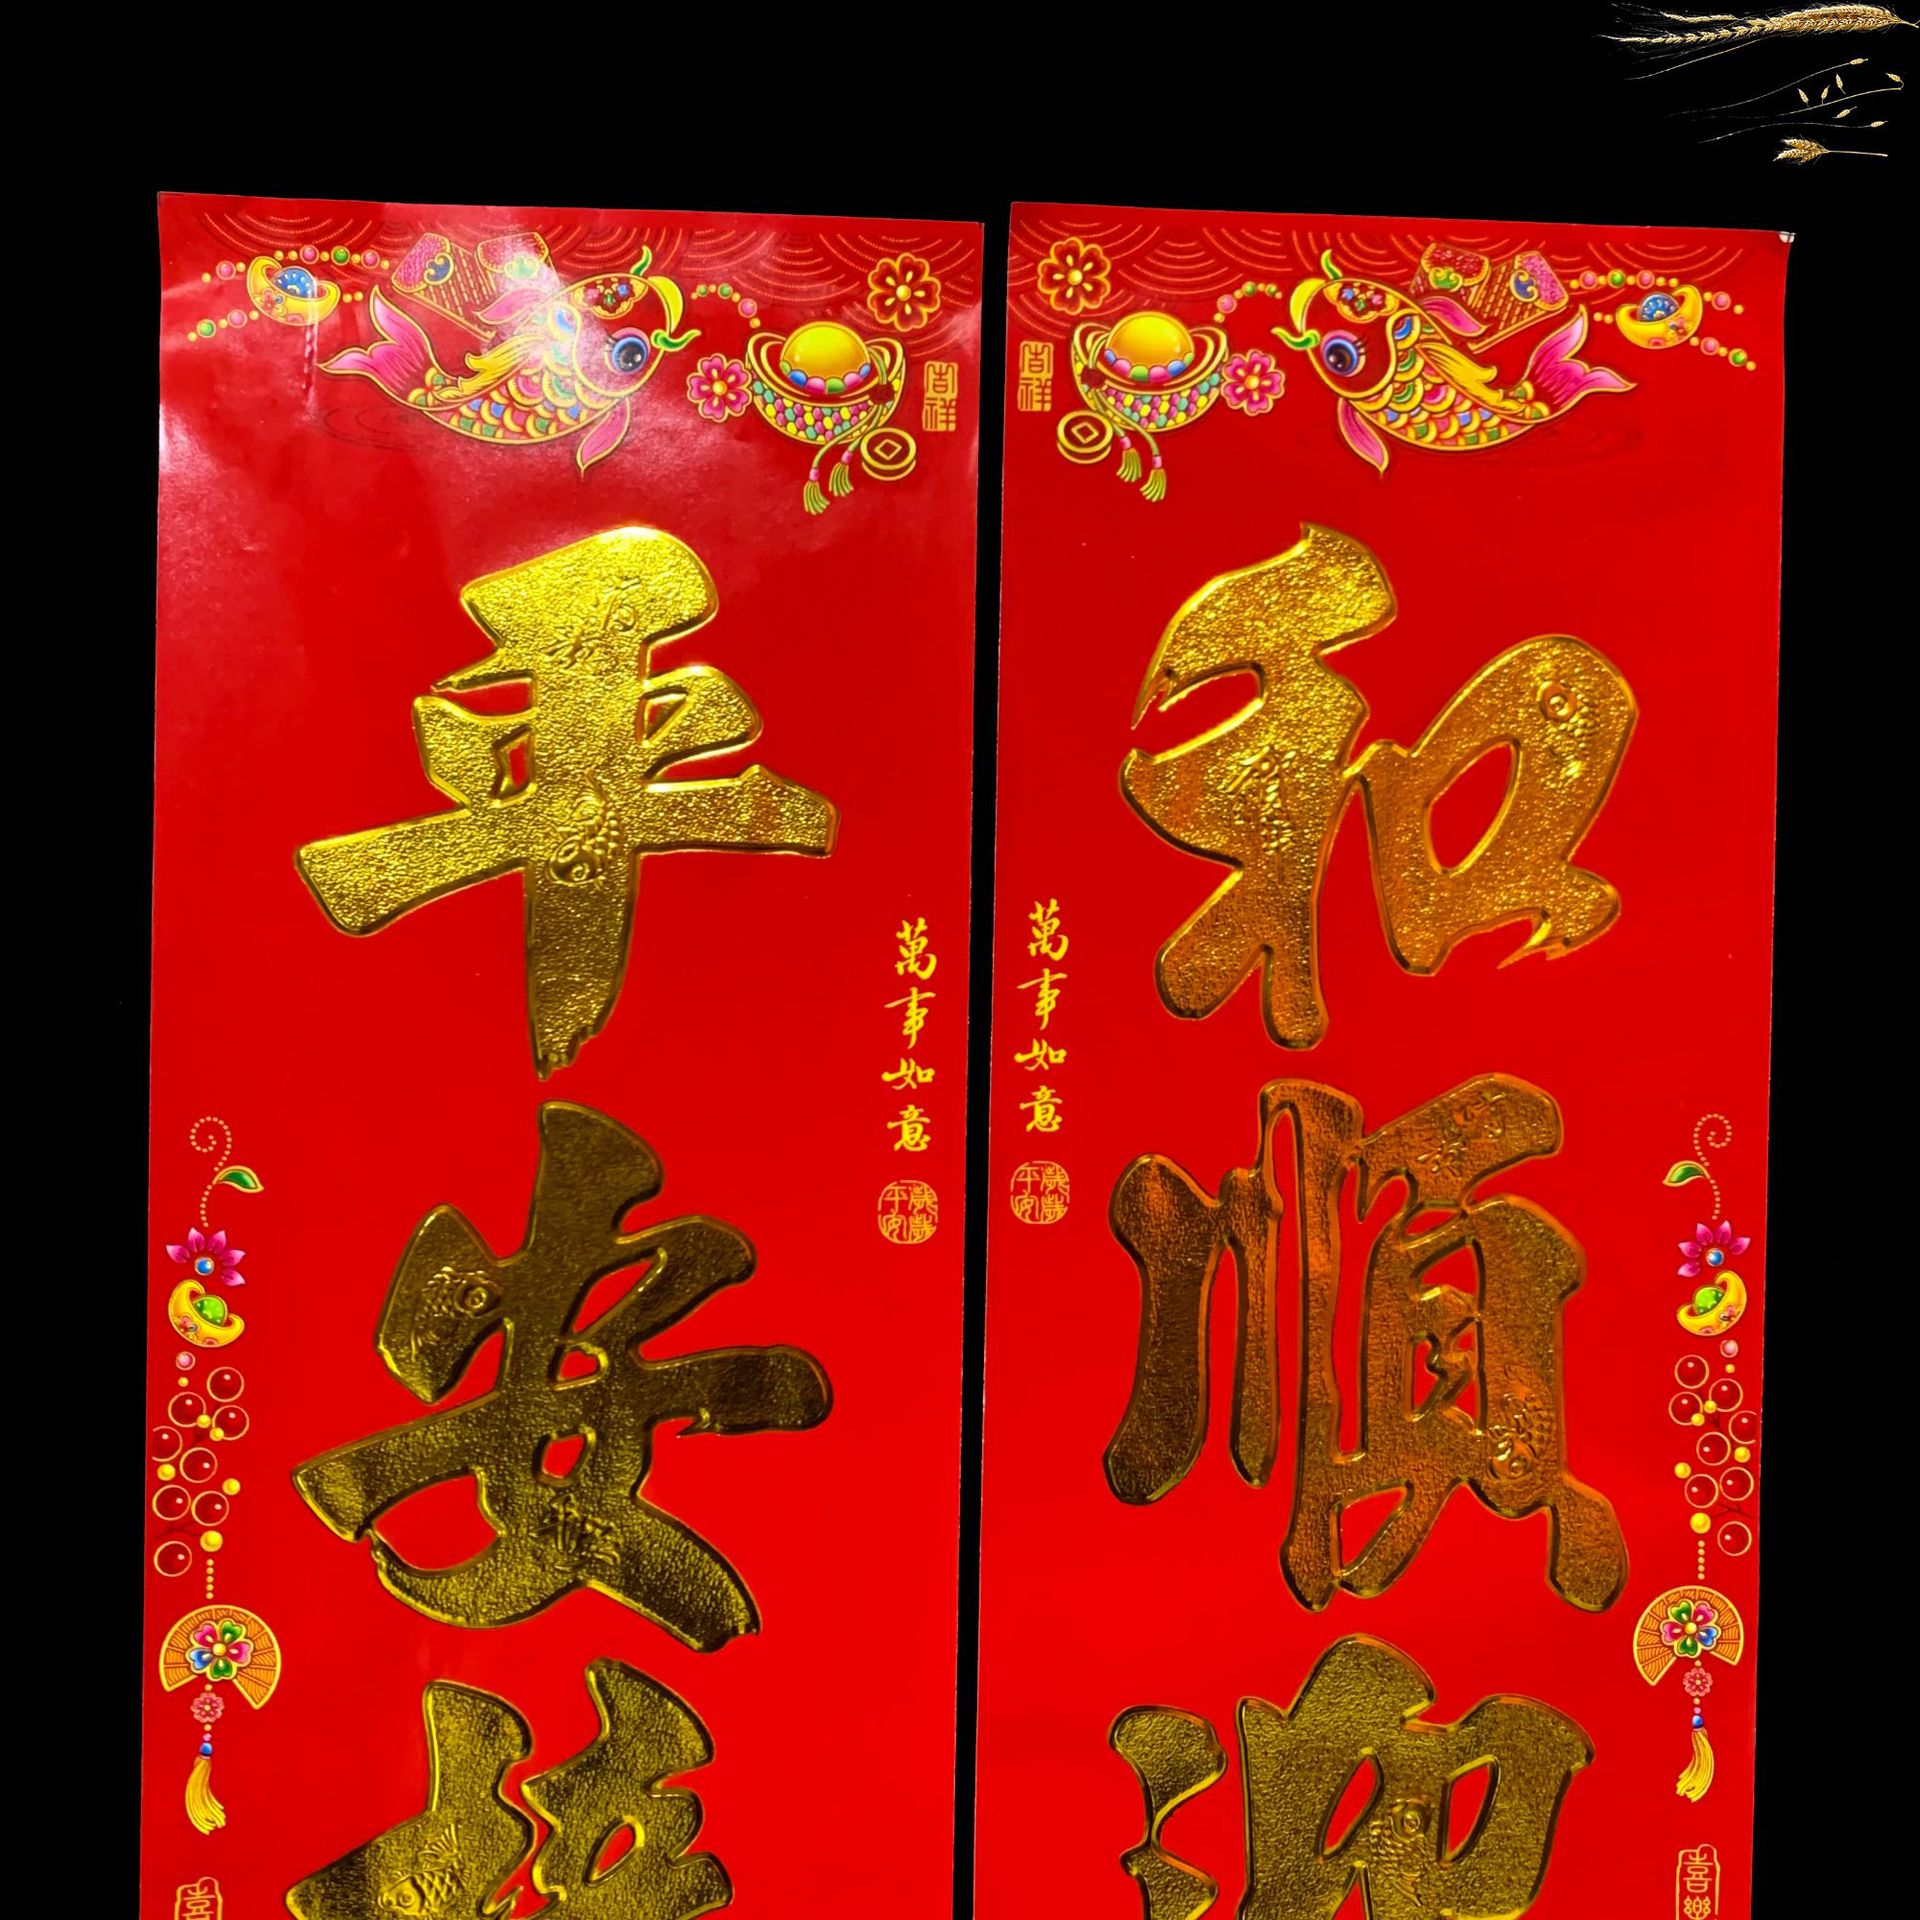 平安
萬事如意
歲歲平安
吉祥
和順迎
萬事如意
歲歲平安
吉祥